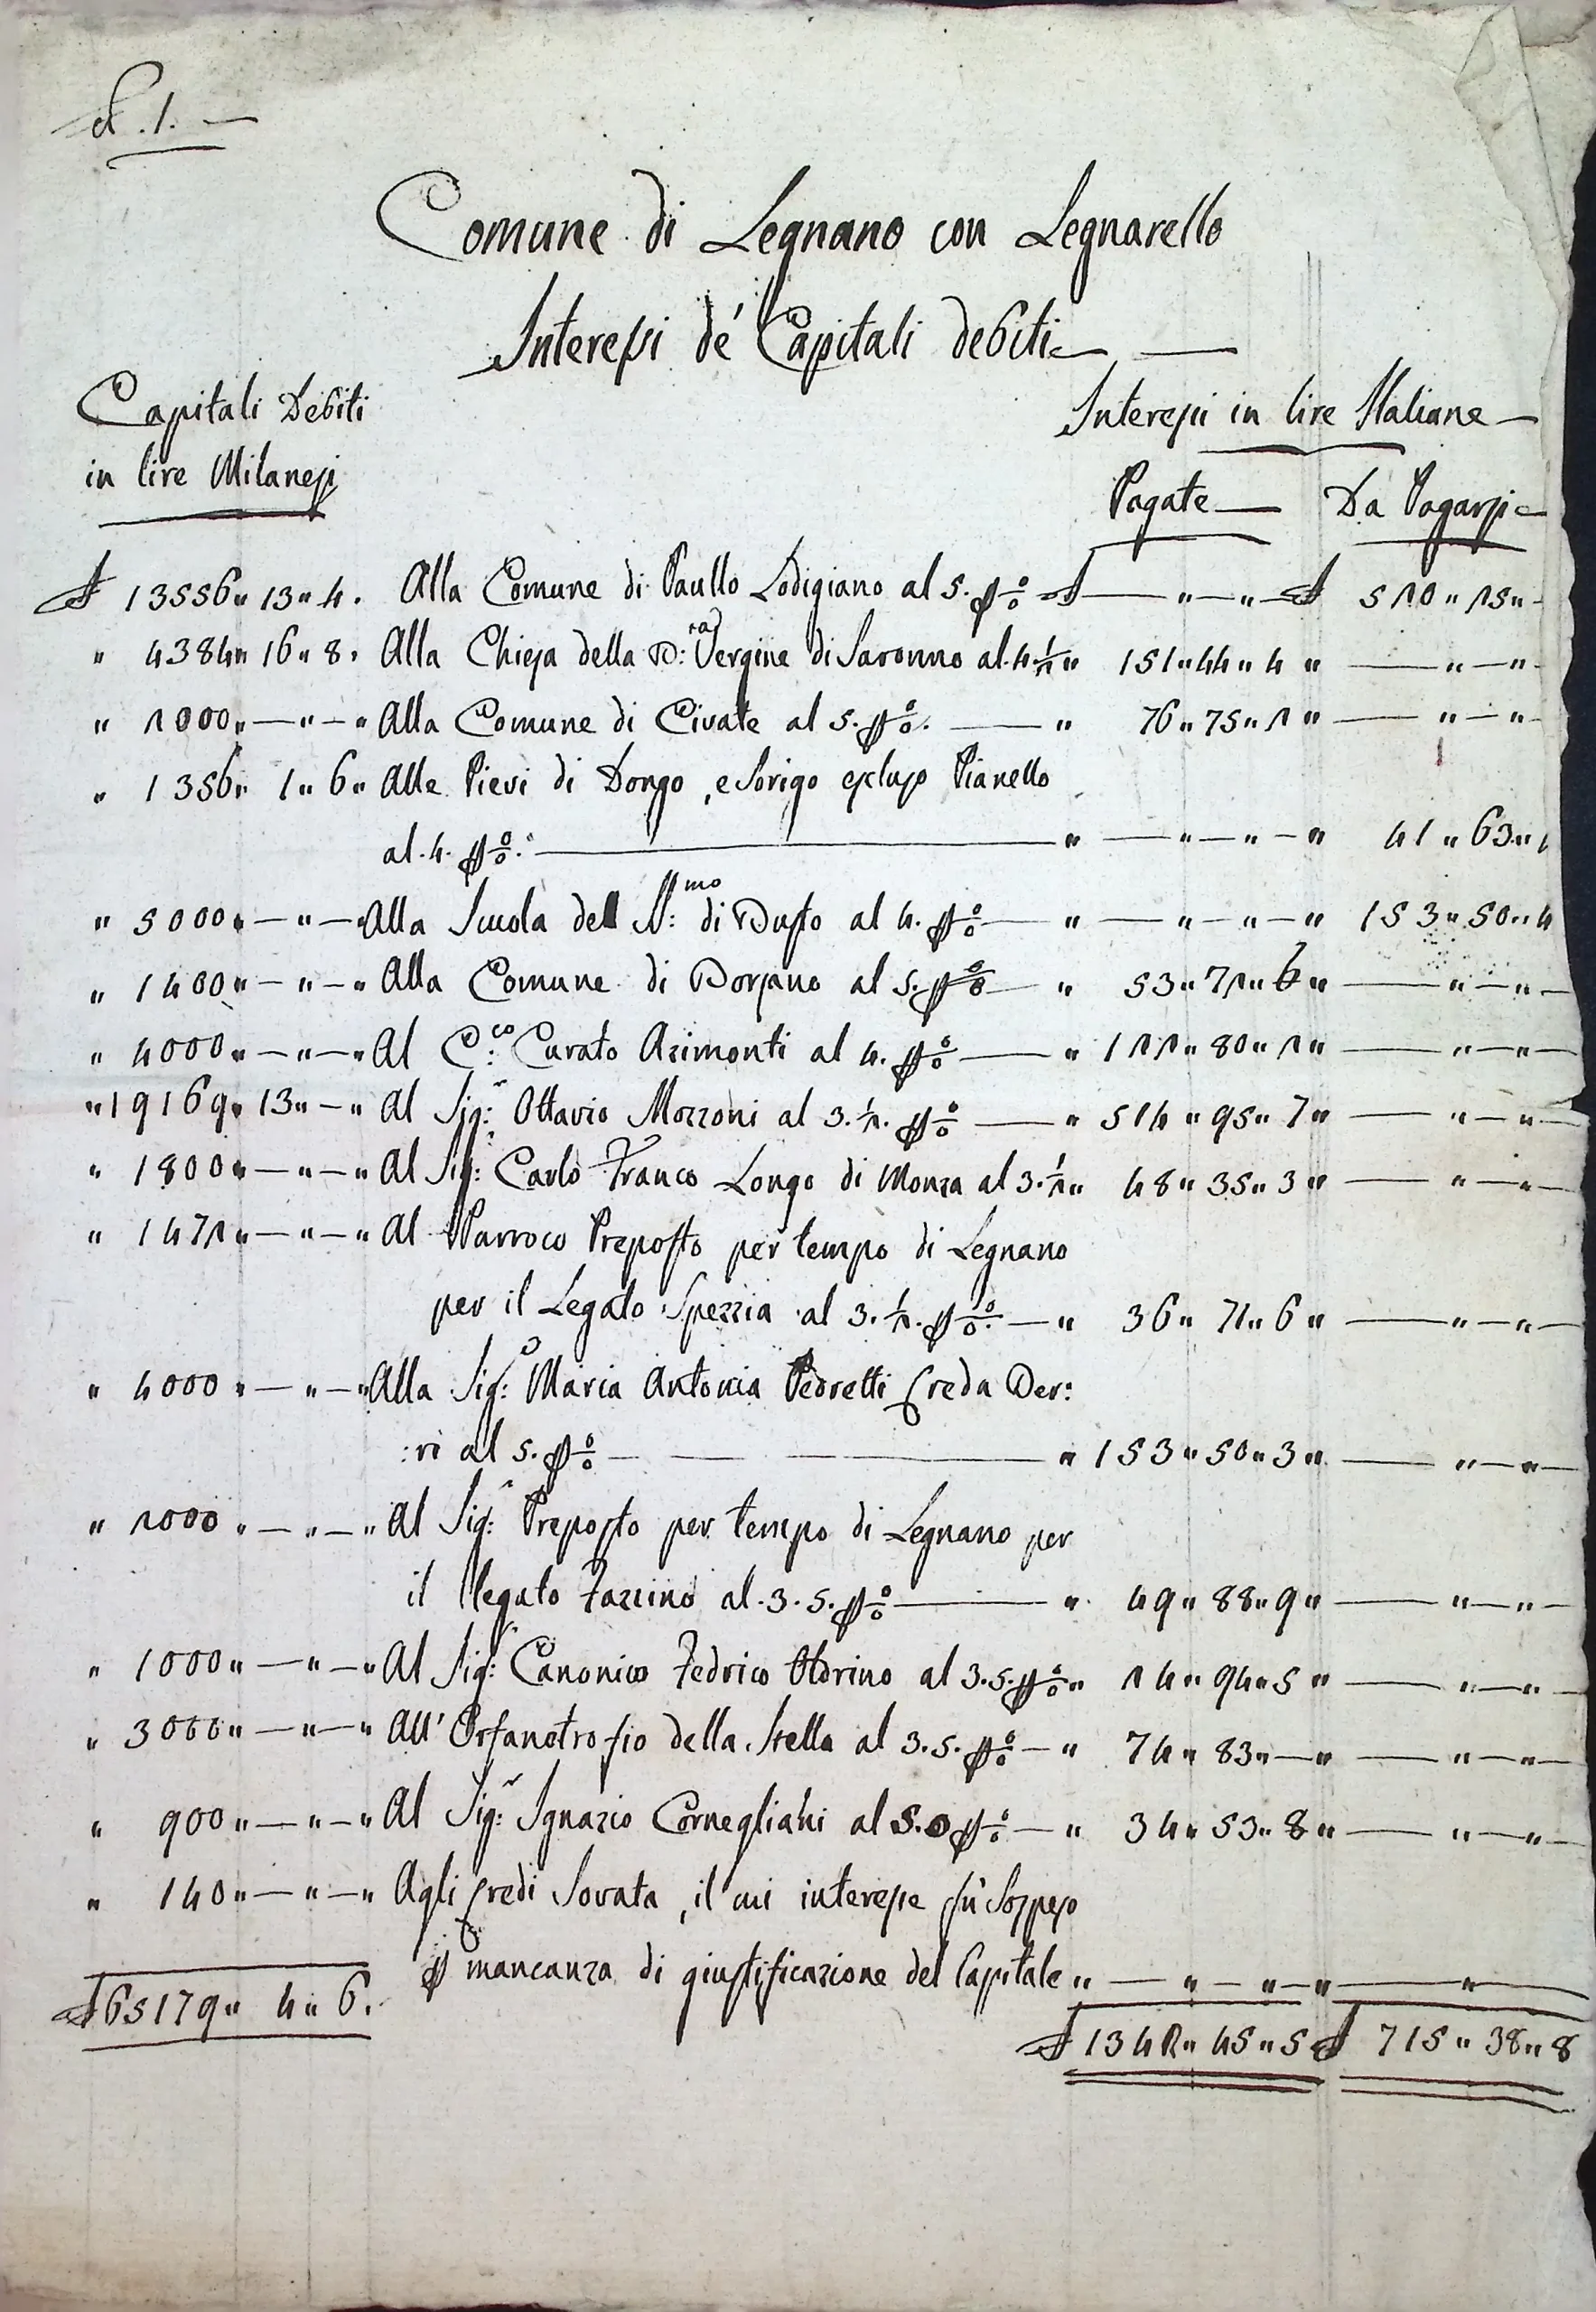 N. 1. —
Comune di Legnano con Legnarello
Interessi de' Capitali debiti —
Capitali Debiti
in lire Milanesi
Interessi in lire Italiane —
Pagate — Da Pagarsi —
£ 13556 " 13 " 4. Alla Comune di Paullo Lodigiano al 5. p% £ — " — " — £ 520 " 25 " -
" 4384 " 16 " 8. Alla Chiesa della B: Vergine di Saronno al. 4. 1/2 " 151 " 44 " 4 " — " — "
" 2000 " — " — " Alla Comune di Civate al 5. p%. — " 76 " 75 " 2 " — " — "
" 1356 " 1 " 6 " Alle Pievi di Dongo, e Sorigo escluso Pianello
al. 4. p%. — " — " — " — " 41 " 63 "
" 5000 " — " — " Alla Scuola dell S:mo di Busto al 4. p% — " — " — " — " 153 " 50 " 4
" 1400 " — " — " Alla Comune di Borsano al 5. p% — " 53 " 72 " 6 " — " — " —
" 4000 " — " — " Al C:co Curato Azimonti al 4. p% — " 122 " 80 " 2 " — " — " —
" 19169 " 13 " — " Al Sig:r Ottavio Mozzoni al 3. 1/2. p% — " 514 " 95 " 7 " — " — " —
" 1800 " — " — " Al Sig:r Carlo Franco Longo di Monza al 3. 1/2 " 48 " 35 " 3 " — " — " —
" 1472 " — " — " Al Parroco Preposto per tempo di Legnano
per il Legato Spezzia al 3. 1/2. p%. — " 36 " 71 " 6 " — " — " —
" 4000 " — " — " Alla Sig:a Maria Antonia Pedretti Ereda Der:
:ri al 5. p% — " 153 " 50 " 3 " — " — " —
" 2000 " — " — " Al Sig:r Preposto per tempo di Legnano per
il legato Fazzino al. 3. 5. p% — " 49 " 88 " 9 " — " — " —
" 1000 " — " — " Al Sig:r Canonico Fedrico Oldrino al 3. 5. p% " 24 " 94 " 5 " — " — " —
" 3000 " — " — " All' Orfanotrofio della Stella al 3. 5. p% — " 74 " 83 " — " — " — " —
" 900 " — " — " Al Sig:r Ignazio Cornegliani al 5. p% — " 34 " 53 " 8 " — " — " —
" 140 " — " — " Agli Eredi Sovata, il cui interesse fù sospeso
p mancanza di giustificazione del Capitale " — " — " — " — " —
£ 65179 " 4 " 6.
£ 1342 " 45 " 5 £ 715 " 38 " 8